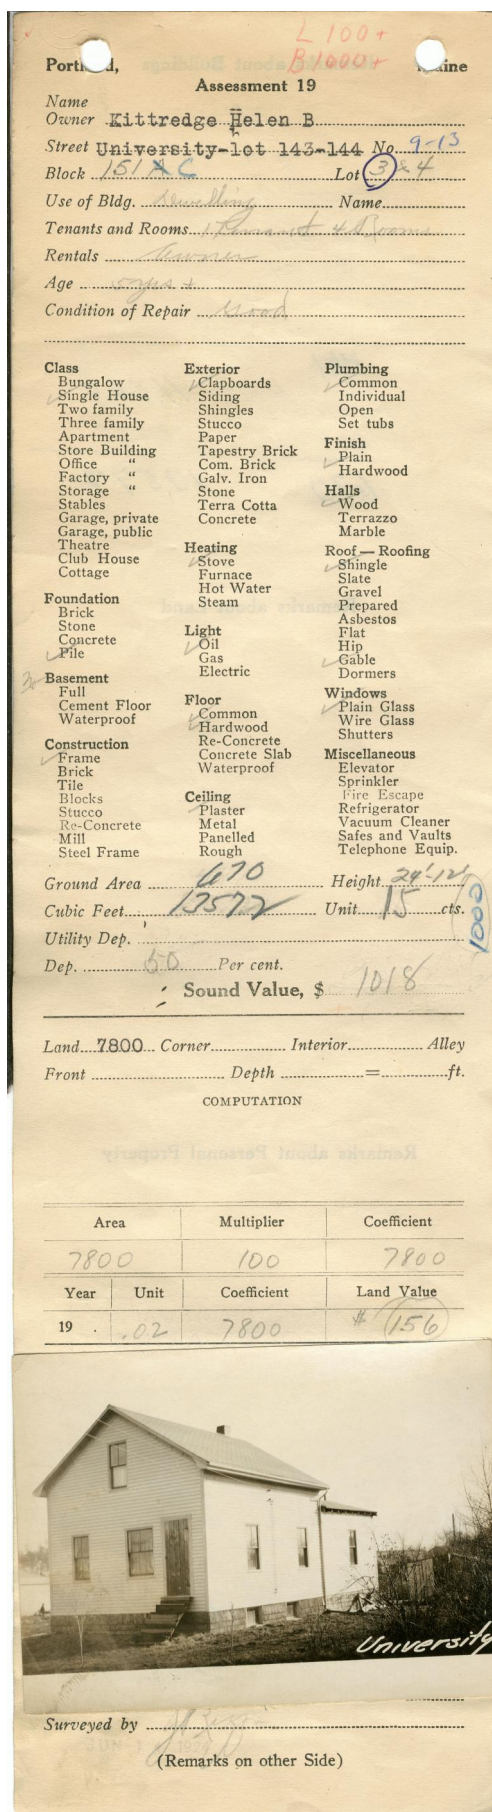 L 100+
B 1000+
Portland, Maine
Assessment 19
Name
Owner Kittredge Helen B
Street University-lot 143-144 No. 9-13
Block 151 A C Lot 3 & 4
Use of Bldg. Dwelling Name
Tenants and Rooms 1 Tenant 4 Rooms
Rentals Owner
Age yrs +
Condition of Repair Good
Class
Bungalow
Single House
Two family
Three family
Apartment
Store Building
Office "
Factory "
Storage "
Stables
Garage, private
Garage, public
Theatre
Club House
Cottage
Foundation
Brick
Stone
Concrete
Pile
Basement
Full
Cement Floor
Waterproof
Construction
Frame
Brick
Tile
Blocks
Stucco
Re-Concrete
Mill
Steel Frame
Exterior
Clapboards
Siding
Shingles
Stucco
Paper
Tapestry Brick
Com. Brick
Galv. Iron
Stone
Terra Cotta
Concrete
Heating
Stove
Furnace
Hot Water
Steam
Light
Oil
Gas
Electric
Floor
Common
Hardwood
Re-Concrete
Concrete Slab
Waterproof
Ceiling
Plaster
Metal
Panelled
Rough
Plumbing
Common
Individual
Open
Set tubs
Finish
Plain
Hardwood
Halls
Wood
Terrazzo
Marble
Roof — Roofing
Shingle
Slate
Gravel
Prepared
Asbestos
Flat
Hip
Gable
Dormers
Windows
Plain Glass
Wire Glass
Shutters
Miscellaneous
Elevator
Sprinkler
Fire Escape
Refrigerator
Vacuum Cleaner
Safes and Vaults
Telephone Equip.
Ground Area 670 Height 24'-12'
Cubic Feet 13572 Unit 15 cts.
1000
Utility Dep.
Dep. 50 Per cent.
Sound Value, $ 1018
Land 7800 Corner Interior Alley
Front Depth = ft.
COMPUTATION
Remarks about Personal Property
Area Multiplier Coefficient
7800 100 7800
Year Unit Coefficient Land Value
19 .02 7800 $ 156
University
Surveyed by
(Remarks on other Side)